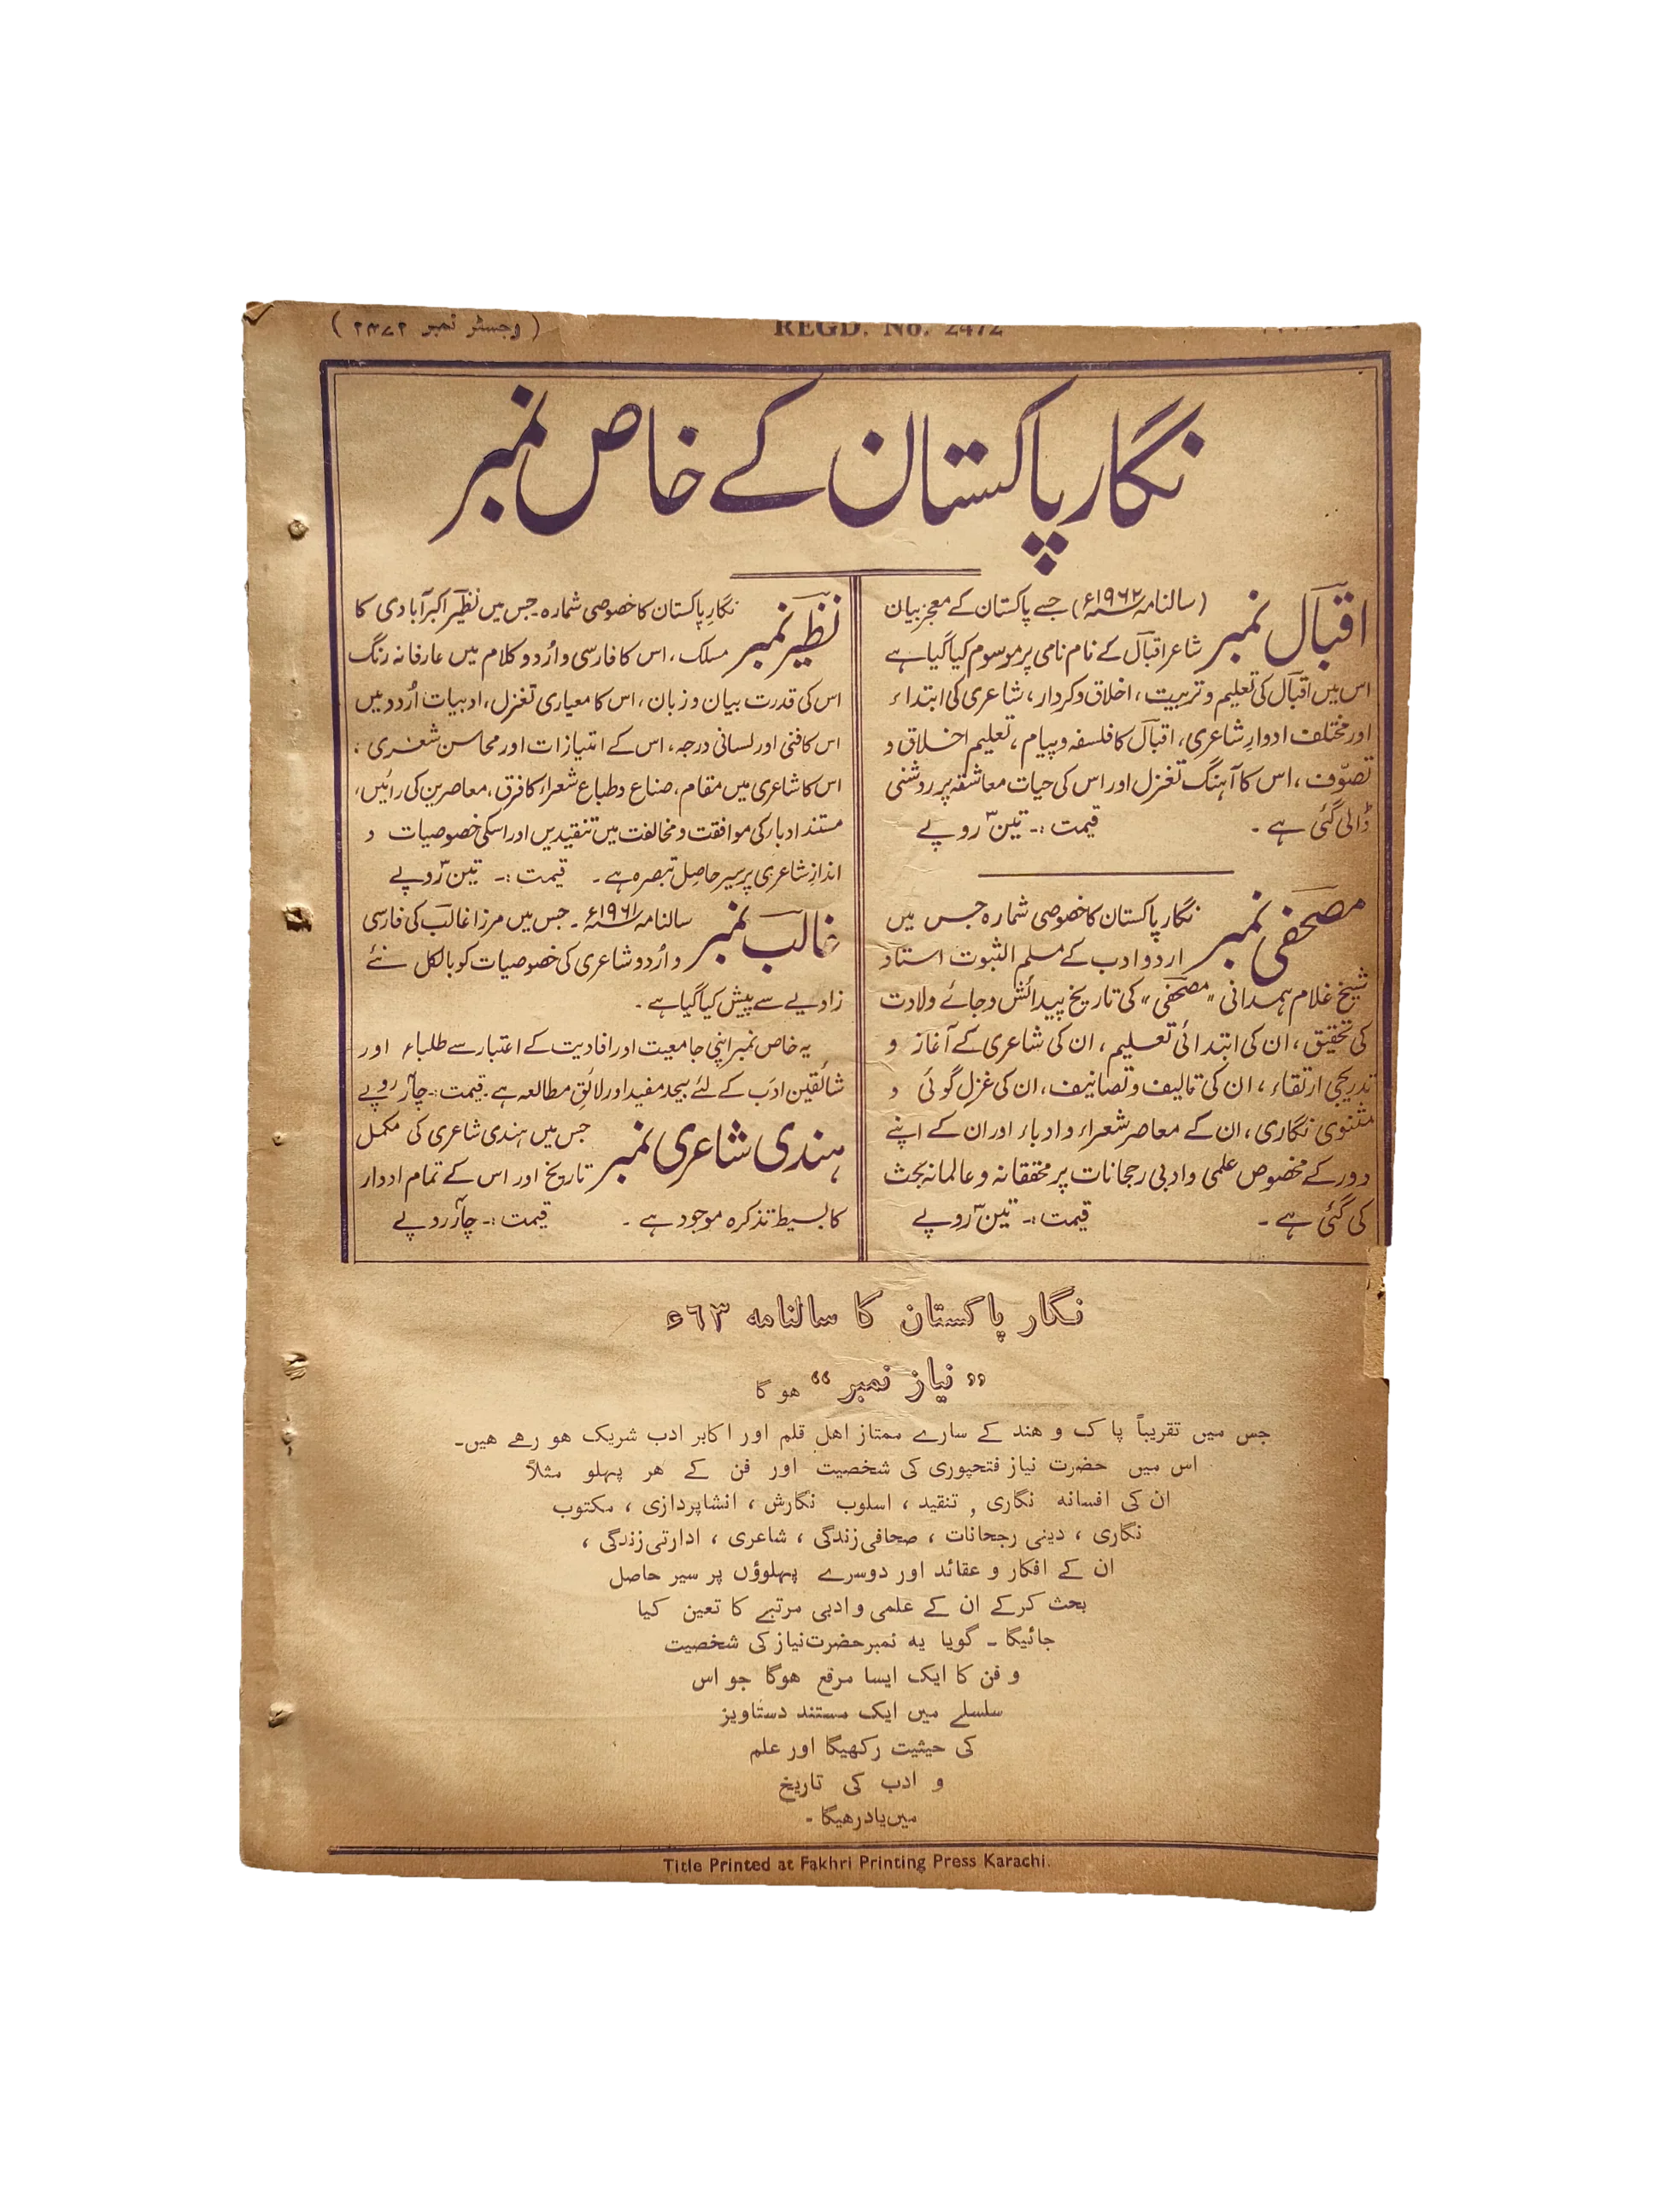 REGD. No. 2472
( رجسٹر نمبر ۲۴۷۲ )
نگار پاکستان کے خاص نمبر
اقبال نمبر (سالنامہ ۱۹۶۲ء) جسے پاکستان کے معجز بیان
شاعر اقبال کے نام نامی پر موسوم کیا گیا ہے
اس میں اقبال کی تعلیم و تربیت، اخلاق و کردار، شاعری کی ابتداء
اور مختلف ادوارِ شاعری، اقبال کا فلسفہ و پیام، تعلیم اخلاق و
تصوّف، اس کا آہنگ تغزل اور اس کی حیات معاشقہ پر روشنی
ڈالی گئی ہے۔ قیمت :۔ تین۳ روپے
مصحفی نمبر نگار پاکستان کا خصوصی شمارہ جس میں
اردو ادب کے مسلم الثبوت استاد
شیخ غلام ہمدانی "مصحفی" کی تاریخ پیدائش و جائے ولادت
کی تحقیق، ان کی ابتدائی تعلیم، ان کی شاعری کے آغاز و
تدریجی ارتقاء، ان کی تالیف و تصانیف، ان کی غزل گوئی و
مثنوی نگاری، ان کے معاصر شعراء و ادباء اور ان کے اپنے
دور کے مخصوص علمی و ادبی رجحانات پر محققانہ و عالمانہ بحث
کی گئی ہے۔ قیمت :۔ تین۳ روپے
نظیر نمبر نگارِ پاکستان کا خصوصی شمارہ۔ جس میں نظیر اکبر آبادی کا
مسلک، اس کا فارسی و اُردو کلام میں عارفانہ رنگ
اس کی قدرت بیان و زبان، اس کا معیاری تغزل، ادبیات اُردو میں
اس کا فنی اور لسانی درجہ، اس کے امتیازات اور محاسن شعری،
اس کا شاعری میں مقام، صناع و طباع شعراء کا فرق، معاصرین کی رائیں،
مستند ادباء کی موافقت و مخالفت میں تنقیدیں اور اسکی خصوصیات و
اندازِ شاعری پر سیر حاصل تبصرہ ہے۔ قیمت :۔ تین۳ روپے
غالب نمبر سالنامہ ۱۹۶۱ء۔ جس میں مرزا غالب کی فارسی
و اُردو شاعری کی خصوصیات کو بالکل نئے
زاویے سے پیش کیا گیا ہے۔
یہ خاص نمبر اپنی جامعیت اور افادیت کے اعتبار سے طلباء اور
شائقین ادب کے لئے بیحد مفید اور لائق مطالعہ ہے۔ قیمت :۔ چار۴ روپے
ہندی شاعری نمبر جس میں ہندی شاعری کی مکمل
تاریخ اور اس کے تمام ادوار
کا بسیط تذکرہ موجود ہے۔ قیمت :۔ چار۴ روپے
نگار پاکستان کا سالنامہ ۶۳ء
"نیاز نمبر" ہوگا
جس میں تقریباً پاک و ہند کے سارے ممتاز اہل قلم اور اکابر ادب شریک ہو رہے ہیں۔
اس میں حضرت نیاز فتحپوری کی شخصیت اور فن کے ہر پہلو مثلاً
ان کی افسانہ نگاری , تنقید ، اسلوب نگارش ، انشاپردازی ، مکتوب
نگاری ، دینی رجحانات ، صحافی زندگی ، شاعری ، ادارتی زندگی ،
ان کے افکار و عقائد اور دوسرے پہلوؤں پر سیر حاصل
بحث کرکے ان کے علمی و ادبی مرتبے کا تعین کیا
جائیگا ۔ گویا یہ نمبر حضرت نیاز کی شخصیت
و فن کا ایک ایسا مرقع ہوگا جو اس
سلسلے میں ایک مستند دستاویز
کی حیثیت رکھیگا اور علم
و ادب کی تاریخ
میں یاد رہیگا ۔
Title Printed at Fakhri Printing Press Karachi.